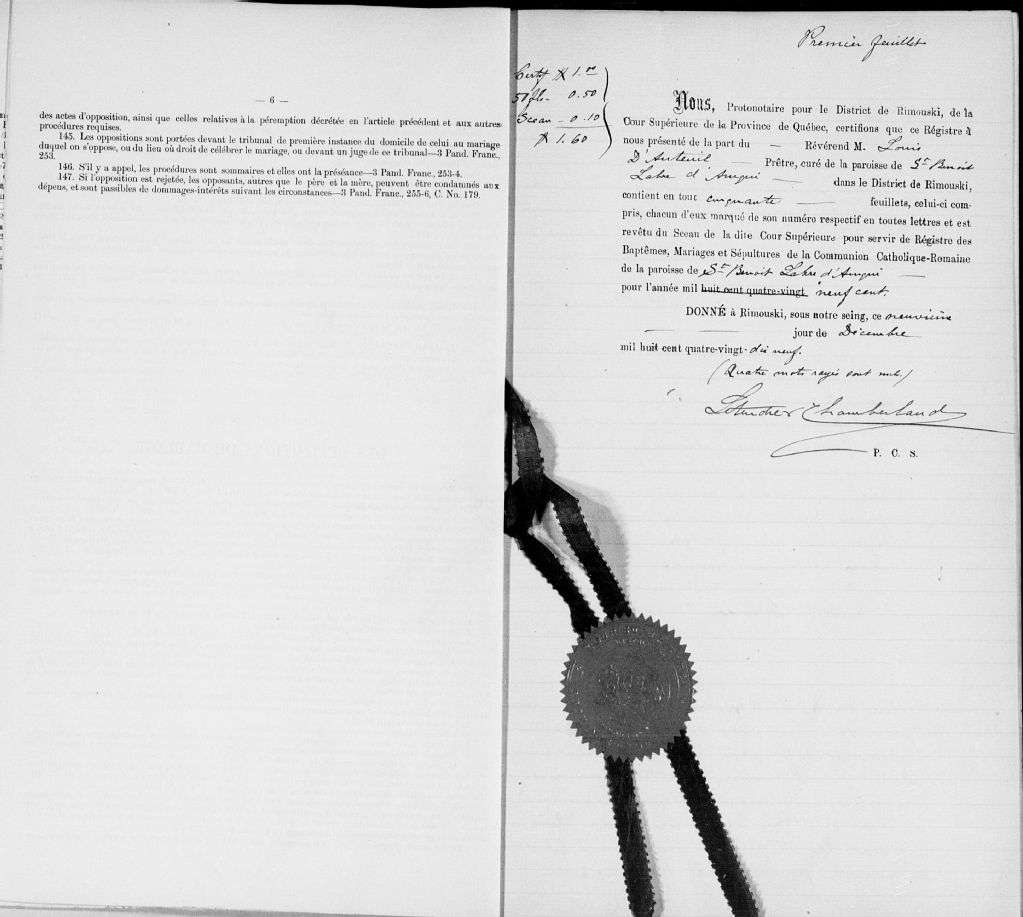 — 6 —
des actes d'opposition, ainsi que celles relatives à la péremption décrétée en l'article précédent et aux autres
procédures requises.
145. Les oppositions sont portées devant le tribunal de première instance du domicile de celui au mariage
duquel on s'oppose, ou du lieu où droit de célébrer le mariage, ou devant un juge de ce tribunal—3 Pand. Franc.,
253.
146. S'il y a appel, les procédures sont sommaires et elles ont la préséance—3 Pand. Franc., 253-4.
147. Si l'opposition est rejetée, les opposants, autres que le père et la mère, peuvent être condamnés aux
dépens, et sont passibles de dommages-intérêts suivant les circonstances—3 Pand. Franc., 255-6, C. No. 179.
Premier feuillet
Certif $ 1.00
50 fls - 0.50
Sceau - 0.10
$ 1.60
Nous, Protonotaire pour le District de Rimouski, de la
Cour Supérieure de la Province de Québec, certifions que ce Régistre à
nous présenté de la part du — Révérend M. Louis
D'Auteuil — Prêtre, curé de la paroisse de St Benoit
Labre d'Amqui — dans le District de Rimouski,
contient en tout cinquante — feuillets, celui-ci com-
pris, chacun d'eux marqué de son numéro respectif en toutes lettres et est
revêtu du Sceau de la dite Cour Supérieure pour servir de Régistre des
Baptêmes, Mariages et Sépultures de la Communion Catholique-Romaine
de la paroisse de St Benoit Labre d'Amqui —
pour l'année mil huit cent quatre-vingt neuf cent.
DONNÉ à Rimouski, sous notre seing, ce neuvième
— — jour de Décembre
mil huit cent quatre-vingt-dix neuf.
(Quatre mots rayés sont nuls.)
Chamberland
P. C. S.